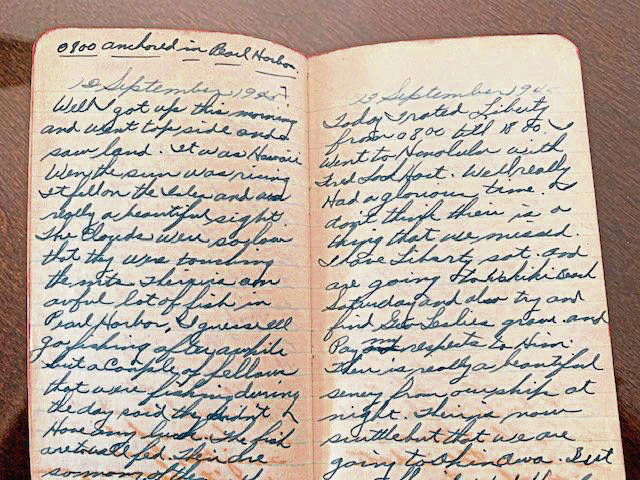 0800 anchored in Pearl Harbor.
12 September 194
Well I got up this morning
and went top side and
saw land. It was Hawaii
Wen the sun was rising
It fell on the and was
really a beautiful sight.
The Clouds were so low
that they were touching
the mts. Their is an
awful lot of fish in
Pearl Harbor, I guess Ill
go fishing after awhile
but a couple of fellows
that were fishing during
the day said they didn't
Have any luck. The fish
are to well fed. Their are
so many of them
September 194
Today I rated Liberty
from 0800 till 1800. I
Went to Honolulu with
Fred Host. We really
Had a glorious time. I
don't think their is a
thing that we missed.
I have Liberty sat. and
are going to Wakiki Beach
Saturday and also try and
find Geo Leslies grave and
Pay my respects to Him.
There is really a beautiful
senery from our ship at
night. Their is now
scuttlebut that we are
going to Okinawa. But